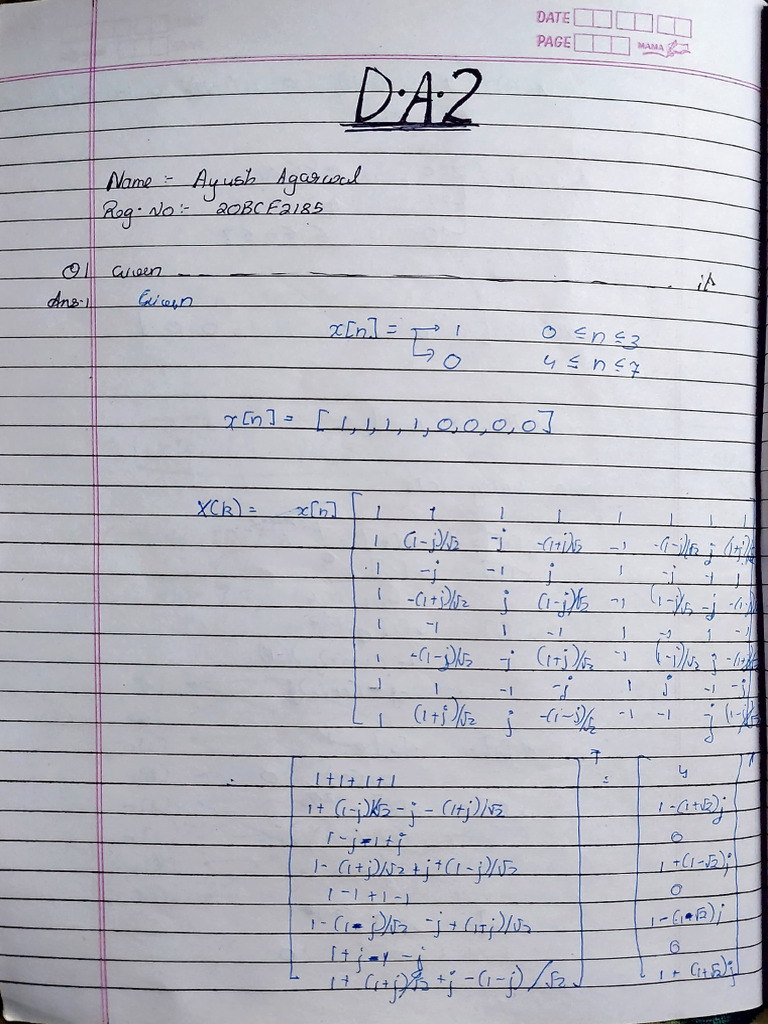 DATE
PAGE MAMA
D.A.2
Name :- Ayush Agarwal
Reg. No :- 20BCF2185
Q1 Given — — — — — — — — if
Ans-1 Given
x[n] = → 1 0 ≤ n ≤ 3
↳ 0 4 ≤ n ≤ 7
x[n] = [1,1,1,1,0,0,0,0]
X(k) = x[n] [ 1 1 1 1 1 1 1 1
1 (1-j)/√2 -j -(1+j)/√2 -1 -(1-j)/√2 j (1+j)/√2
1 -j -1 j 1 -j -1 j
1 -(1+j)/√2 j (1-j)/√2 -1 (1-j)/√2 -j -(1-j)
1 -1 1 -1 1 -1 1 -1
1 -(1-j)/√2 -j (1+j)/√2 -1 (1-j)/√2 j -(1+j)
-1 1 -1 -j 1 j -1 -j
1 (1+j)/√2 j -(1-j)/√2 -1 -1 -j (1-j)/√2
[ 1+1+1+1 ]ᵀ = [ 4 ]
1+(1-j)/√2 -j -(1+j)/√2 1-(1+√2)j
1-j-1+j 0
1-(1+j)/√2 +j+(1-j)/√2 1+(1-√2)j
1-1+1-1 0
1-(1-j)/√2 -j+(1+j)/√2 1-(1-√2)j
1+j-1-j 0
1+(1+j)/√2 +j-(1-j)/√2 1+(1+√2)j